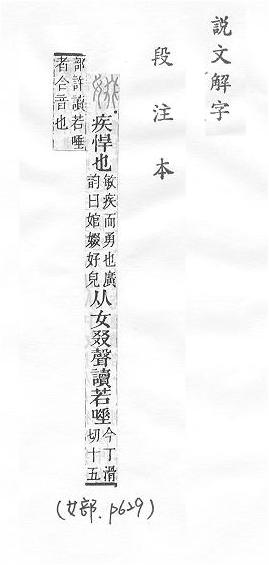 說文解字
段注本
娺 疾悍也敏疾而勇也廣韵曰婠娺好皃从女叕聲讀若唾今丁滑切十五
部許讀若唾者合音也
(女部.p629)